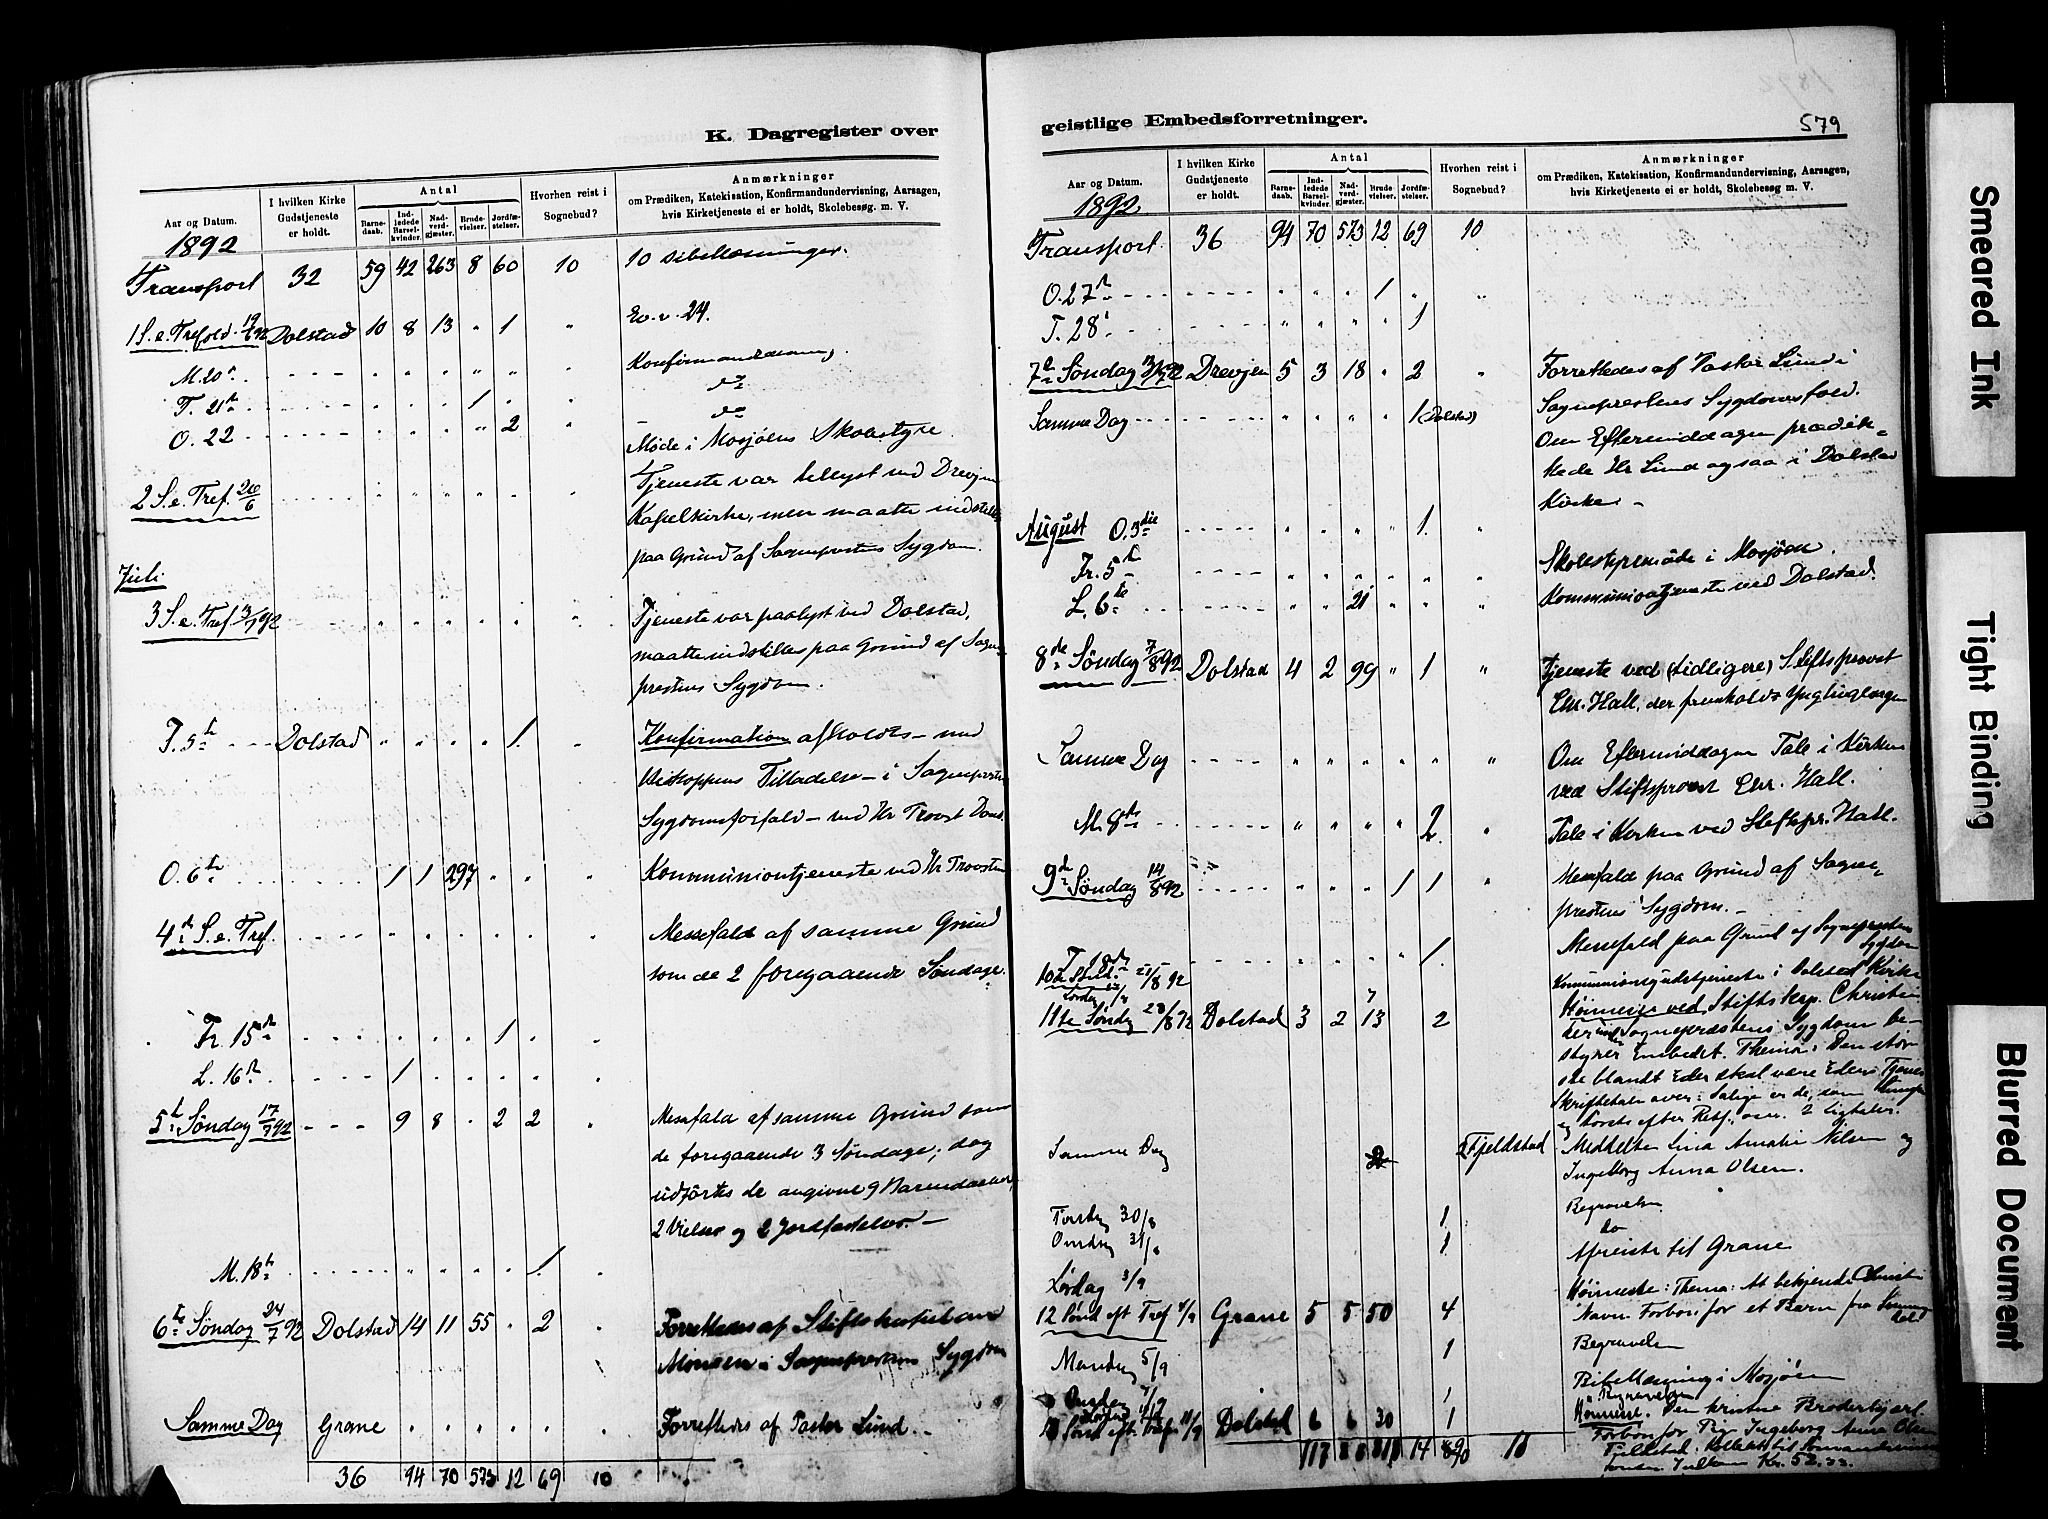 K. Dagregister over
Aar og Datum.
I hvilken Kirke Gudstjeneste er holdt.
Antal
Barnedaab.
Indledede Barselkvinder.
Nadverdgjæster.
Brudevielser.
Jordfæstelser.
Hvorhen reist i Sognebud?
Anmærkninger
om Prædiken, Katekisation, Konfirmandundervisning, Aarsagen,
hvis Kirketjeneste ei er holdt, Skolebesøg. m. V.
1892
Transport 32 59 42 263 8 60 10 10 Bibellæsninger.
1 S. e. Trefold. 19/6 92 Dolstad 10 8 13 " 1 " Ev. v. 24.
M. 20de Konfirmandlæsning.
T. 21de 1 do
O. 22 2 do
Møde i Mosjøens Skolestyre
2 S. e. Tref. 26/6 Tjeneste var bellyst ved Drevjen
Kapelkirke, men maatte indstilles
paa Grund af Sognepræstens Sygdom.
Juli
3 S. e. Tref. 3/7 92 Tjeneste var paalyst ved Dolstad,
maatte indstilles paa Grund af Sogne-
prestens Sygdom.
T. 5te Dolstad 1. Konfirmation afholdts - med
Biskoppens Tilladelse - i Sogneprestens
Sygdomsforfald - ved Hr Provst
O. 6te 1 1 297 Kommuniontjeneste ved Hr Provsten
4de S. e. Tref. Messefald af samme Grund
som de 2 foregaaende Søndage.
Fr. 15de 1
L. 16de 1
5te Søndag 17/7 92 9 8 . 2 2 Messefald af samme Grund som
de foregaaende 3 Søndage; dog
udførtes de angivne 9 Barnedaaber,
2 Vielser og 2 Jordfæstelser. -
M. 18de 1
6te Søndag 24/7 92 Dolstad 14 11 55 . 2 Forrettedes af Stiftskapellan
Monsen i Sogneprestens Sygdom
Samme Dag Grane Forrettedes af Pastor Lund. -
36 94 70 573 12 69 10
geistlige Embedsforretninger.
579
Aar og Datum.
I hvilken Kirke Gudstjeneste er holdt.
Antal
Barnedaab.
Indledede Barselkvinder.
Nadverdgjæster.
Brudevielser.
Jordfæstelser.
Hvorhen reist i Sognebud?
Anmærkninger
om Prædiken, Katekisation, Konfirmandundervisning, Aarsagen,
hvis Kirketjeneste ei er holdt, Skolebesøg m. V.
1892
Transport 36 94 70 573 12 69 10
O. 27de 1
T. 28de 1
7de Søndag 31/7 92 Drevjen 5 3 18 . 2 Forrettedes af Pastor Lund i
Sogneprestens Sygdomsforfald.
Samme Dag 1 (Dolstad) Om Eftermiddagen prædik-
kede Hr Lund ogsaa i Dolstad
Kirke. -
August O. 3die 1.
Fr. 5te Skolestyremøde i Mosjøen.
L. 6te 21 Kommuniontjeneste ved Dolstad.
8de Søndag 7/8 92 Dolstad 4 2 99 " 1 " Tjeneste ved (tidligere) Stiftsprovst
Chr. Hall, der fremholdt
Samme Dag Om Eftermiddagen Tale i Kirken
ved Stiftsprovst Chr. Hall.
M. 8de 2. Tale i Kirken ved Stiftspr. Hall.
9de Søndag 14/8 92 1 1 Messefald paa Grund af Sogne-
prestens Sygdom. -
T. 18de 1.
10de Sønd. 21/8 92 Messefald paa Grund af Sogneprestens Sygdom
Lørdag 7 Kommunionsgudstjeneste i Dolstad Kirke
11te Søndg 28/8 92 Dolstad 3 2 13 2 Høimesse ved Stiftskap. Christian
under Sognepræstens Sygdom be-
styrer Embedet. Thema: Den stør-
ste blandt Eder skal være Eders Tjener
Skriftetale over: Salige er de, som hungre
og tørste efter Retf.
Samme Dag 2 Fjeldstad Meddelte Lina Amalie Nilsen og
Ingeborg Anna Olsen.
Tirsdag 30/8 1 Begravelse.
Onsdag 31/8 1 do
Lørdag 3/9 Afreiste til Grane
12 Sønd eft Tref 4/9 Grane 5 5 50 4 Høimesse: Thema: At bekjende Christi
Navn Forbøn for et Barn fra
Mandag 5/9 1 Begravelse
Onsdag 7/9 1 Bibellæsning i Mosjøen
Begravelse
Sønd eft Tref 11/9 Dolstad 6 6 30 1 Høimesse. Den kristne Broderkjærl.
Forbøn for Pige Ingeborg Anna Olsen
Fjeldstad.
Kr. 52.
117 14 90 10
Smeared Ink
Tight Binding
Blurred Document